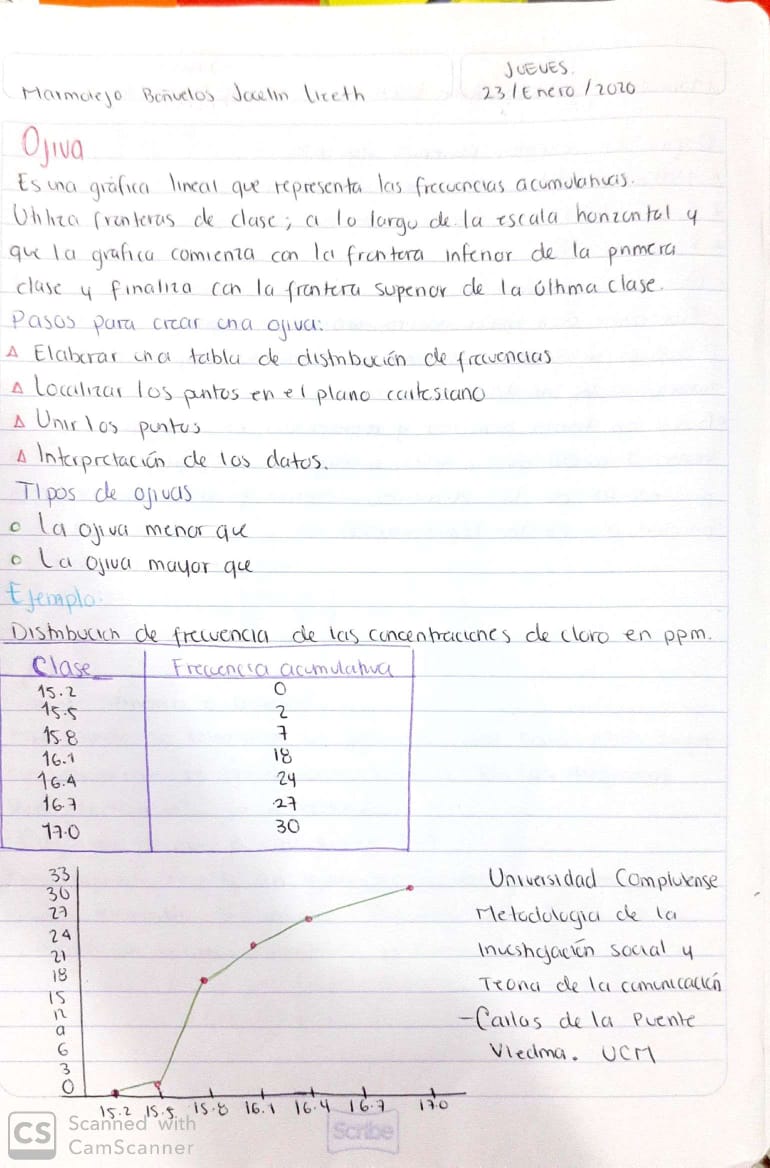 JUEVES.
Marmolejo Bañuelos Jocelin Lizeth
23/Enero/2020
Ojiva
Es una gráfica lineal que representa las frecuencias acumulativas.
Utiliza fronteras de clase; a lo largo de la escala horizontal y
que la grafica comienza con la frontera inferior de la primera
clase y finaliza con la frontera superior de la última clase.
Pasos para crear una ojiva:
Δ Elaborar una tabla de distribución de frecuencias
Δ Localizar los puntos en el plano cartesiano
Δ Unir los puntos
Δ Interpretación de los datos.
Tipos de ojivas
o La ojiva menor que
o La ojiva mayor que
Ejemplo:
Distribución de frecuencia de las concentraciones de cloro en ppm.
Clase Frecuencia acumulativa
15.2 0
15.5 2
15.8 7
16.1 18
16.4 24
16.7 27
17.0 30
33
30
27
24
21
18
15
12
9
6
3
0
15.2 15.5 15.8 16.1 16.4 16.7 17.0
Universidad Complutense
Metodología de la
Investigación social y
Teoría de la comunicación
-Carlos de la Puente
Viedma. UCM
CS Scanned with
CamScanner
Scribe